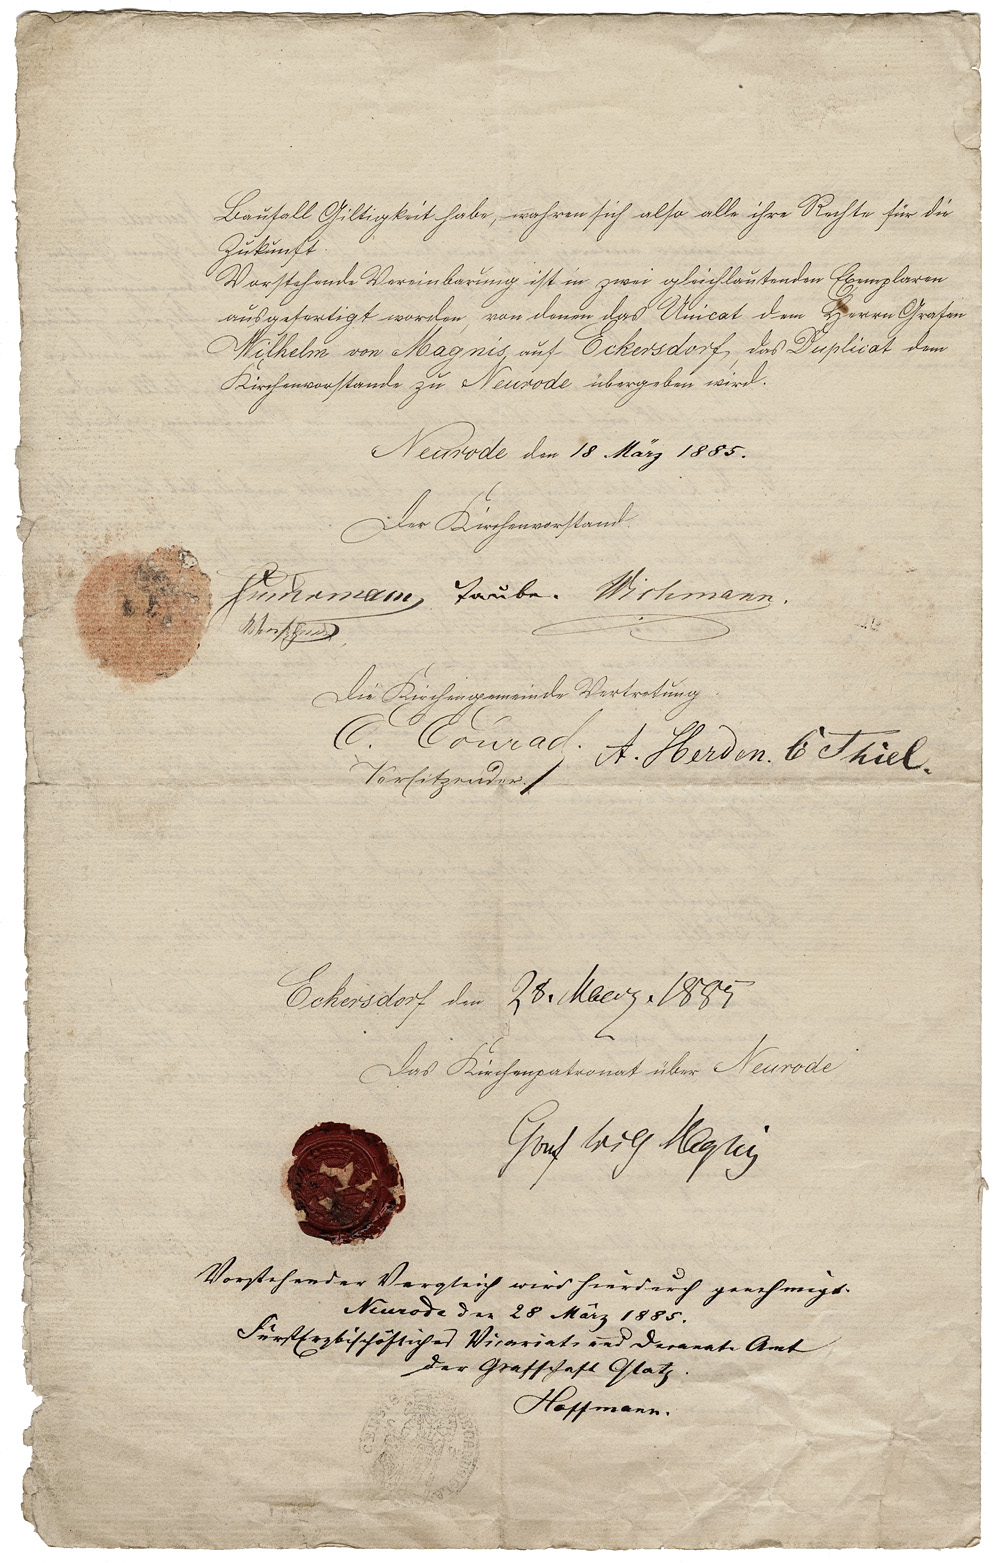 Baufall Giltigkeit habe, wahren sich also alle ihre Rechte für die
Zukunft.
Vorstehende Vereinbarung ist in zwei gleichlautenden Exemplaren
ausgefertigt worden, von denen das Unicat dem Herrn Grafen
Wilhelm von Magnis auf Eckersdorf, das Duplicat dem
Kirchenvorstande zu Neurode übergeben wird.
Neurode den 18 März 1885.
Der Kirchenvorstand.
Taube. Wichmann.
Die Kirchengemeinde Vertretung
C. Conrad. A. Herden. Thiel.
Vorsitzender.
Eckersdorf den 28. Maerz. 1885
Das Kirchenpatronat über Neurode
Graf Wilh Magnis
Vorstehender Vergleich wird hierdurch genehmigt.
Neurode den 28 März 1885.
Fürsterzbischöfliches Vicariats und Decanats Amt
der Grafschaft Glatz.
Hoffmann.